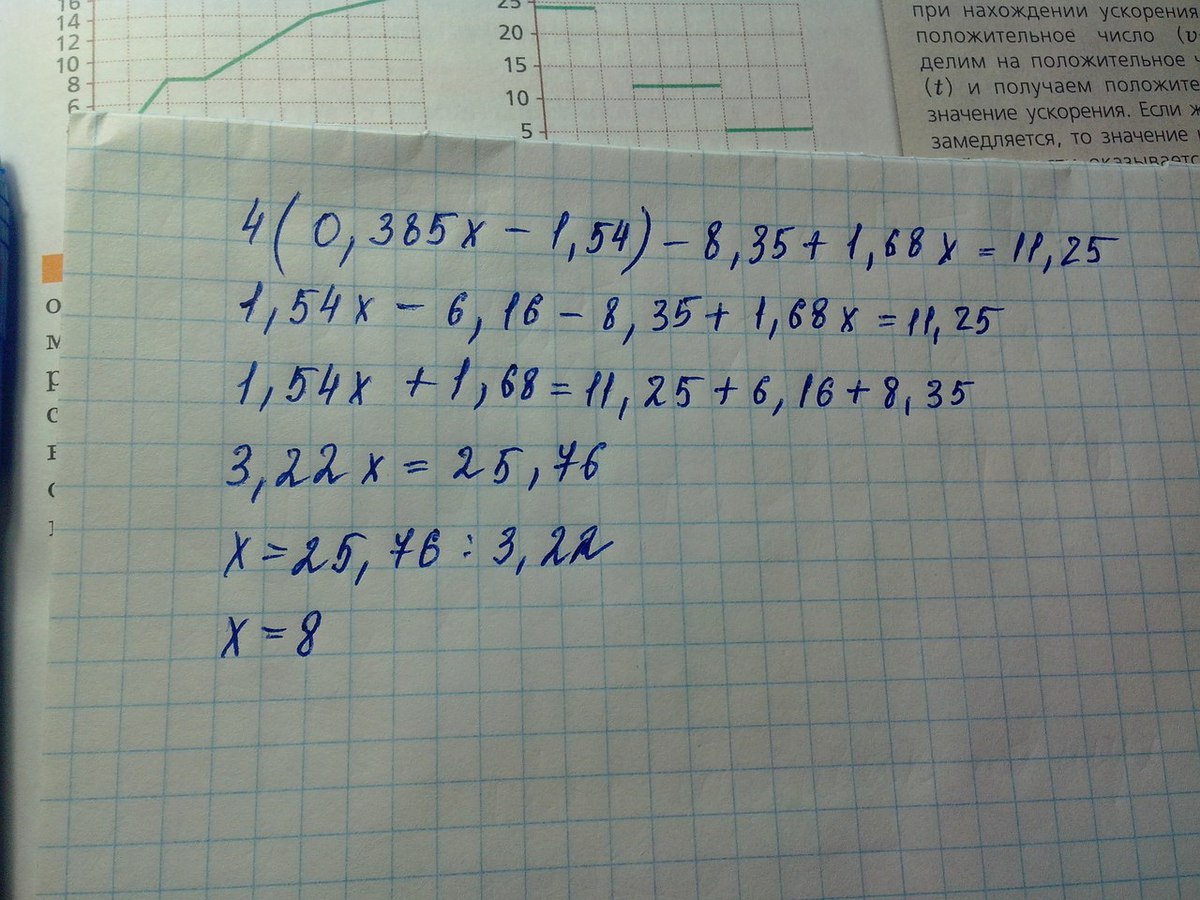 16
14
12
10
8
6
25
20
15
10
5
при нахождении ускорения
положительное число (v
делим на положительное ч
(t) и получаем положите
значение ускорения. Если ж
замедляется, то значение
оказывается
4(0,385x - 1,54) - 8,35 + 1,68x = 11,25
1,54x - 6,16 - 8,35 + 1,68x = 11,25
1,54x + 1,68 = 11,25 + 6,16 + 8,35
3,22x = 25,76
x = 25,76 : 3,22
x = 8
о
м
р
с